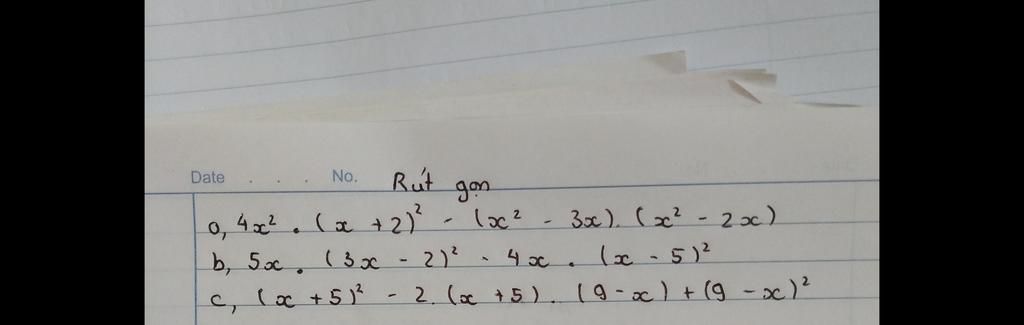 Date . . . No. Rút gọn
a, 4x² . (x + 2)² - (x² - 3x). (x² - 2x)
b, 5x . (3x - 2)² - 4x . (x - 5)²
c, (x + 5)² - 2. (x + 5). (9 - x) + (9 - x)²